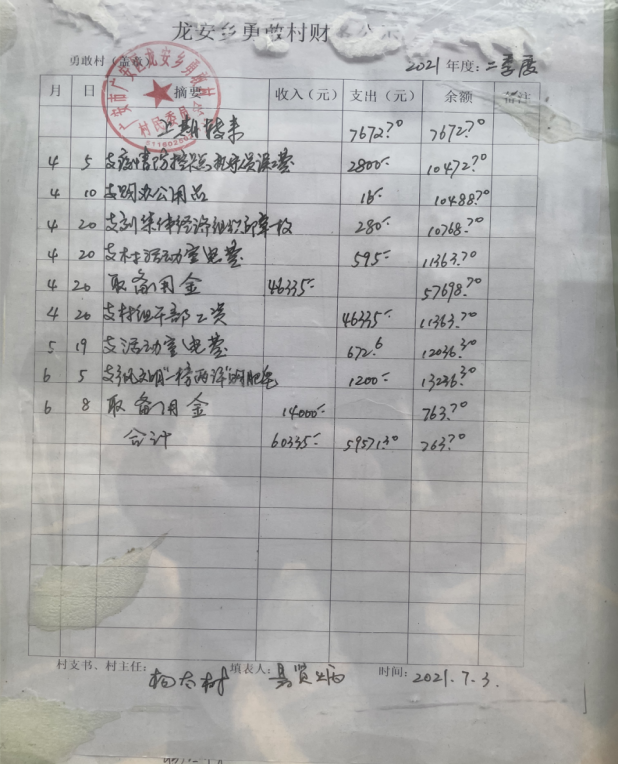 龙安乡勇敢村财
勇敢村（盖章） 2021 年度：二季度
月 日 摘要 收入（元） 支出（元） 余额 备注
上期转来 7672.70 7672.70
4 5 支疫情防控 2800- 10472.70
4 10 支购办公用品 16- 10488.70
4 20 支刻集体经济组织 280- 10768.70
4 20 支村活动室电费 595- 11363.70
4 20 取备用金 46335- 57698.70
4 20 支村组干部工资 46335- 11363.70
5 19 支活动室电费 672.6 12036.30
6 5 1200- 13236.30
6 8 取备用金 14000- 763.70
合计 60335- 59571.30 763.70
村支书、村主任： 填表人： 时间：2021.7.3.